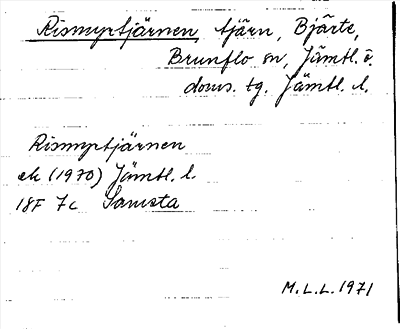 Rismyrtjärnen, tjärn, Bjärte,
Brunflo sn, Jämtl. ö.
doms. tg. Jämtl. l.
Rismyrtjärnen
ek (1970) Jämtl. l.
18F 7c Samsta
M.L.L. 1971